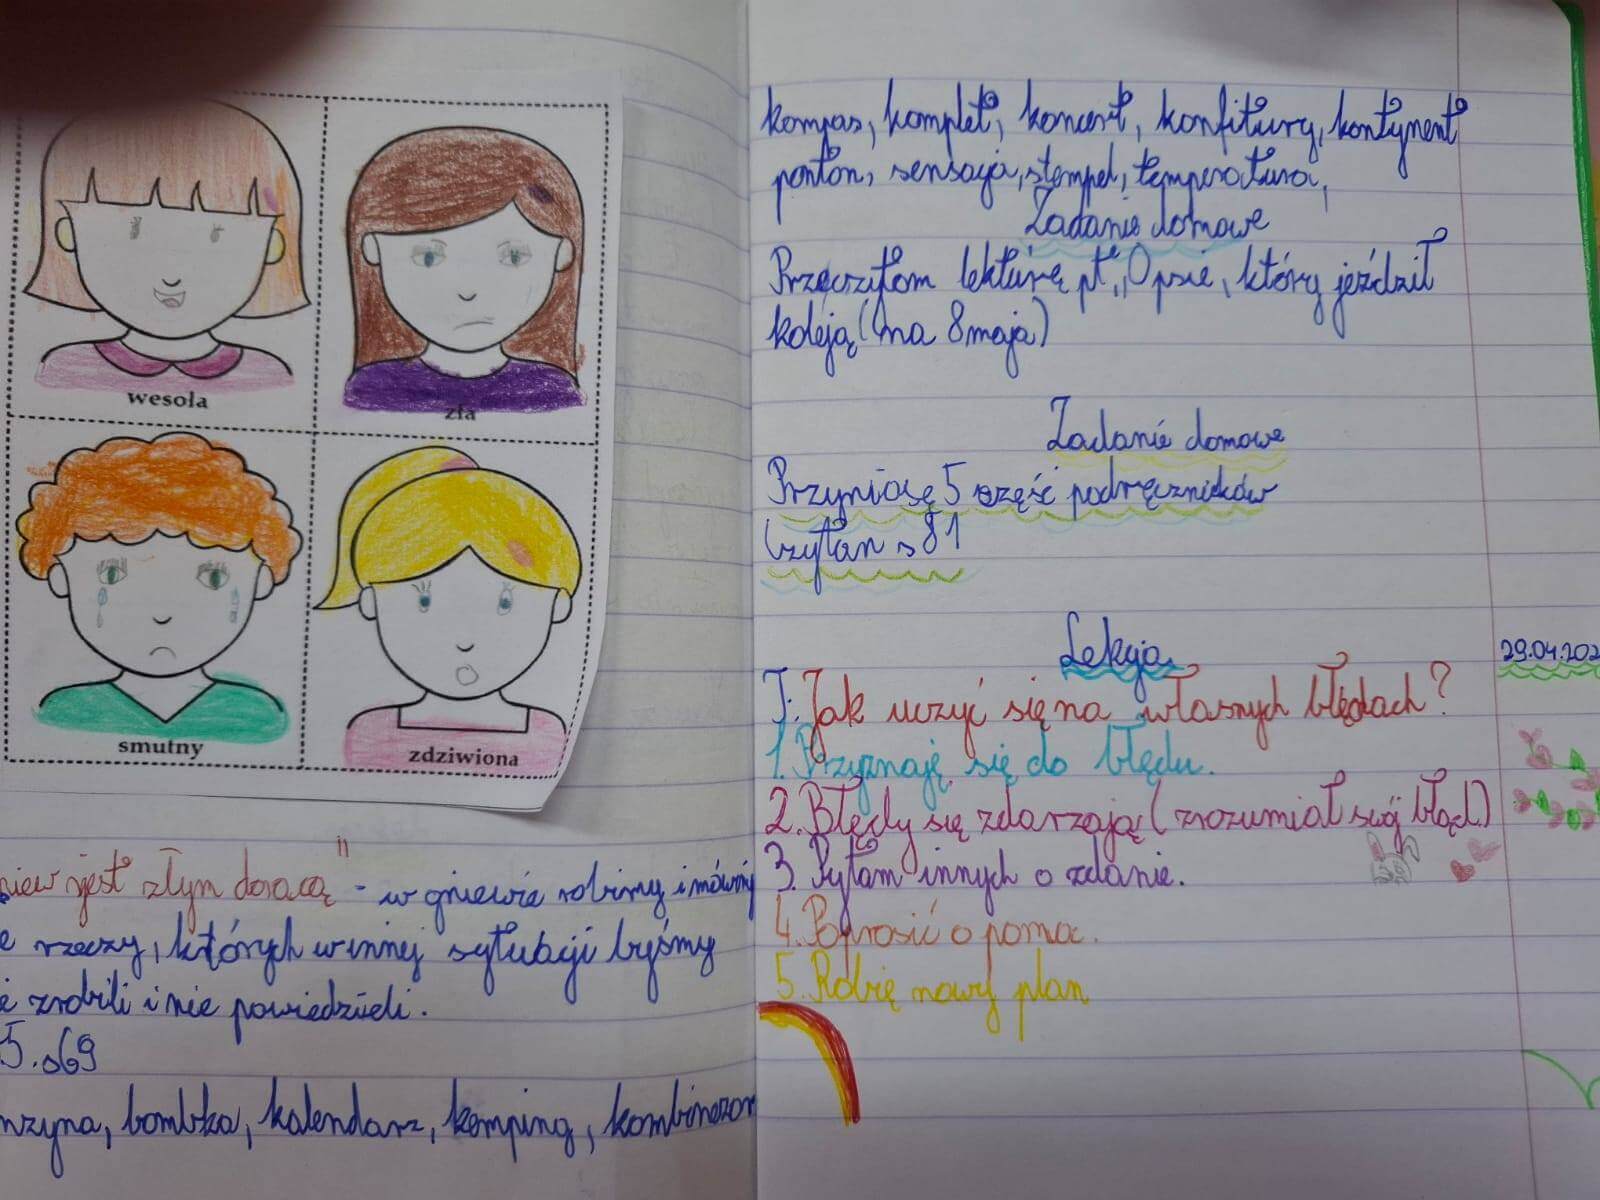 wesoła
zła
smutny
zdziwiona
jest złym doradcą" - w gniewie robimy i mówimy
rzeczy, których w innej sytuacji byśmy
zrobili i nie powiedzieli.
5. s69
bombka, kalendarz, kemping, kombinezon
kompas, komplet, koncert, konfitury, kontynent
ponton, sensacja, stempel, temperatura,
Zadanie domowe
Przeczytam lekturę pt. „O psie, który jeździł
koleją (na 8 maja)
Zadanie domowe
Przyniosę 5 część podręczników
Czytan s 81
Lekcja
29.04.202
T: Jak uczyć się na własnych błędach?
1. Przyznaję się do błędu.
2. Błędy się zdarzają (zrozumiał swój błąd)
3. Pytam innych o zdanie.
4. Poprosić o pomoc.
5. Robię nowy plan